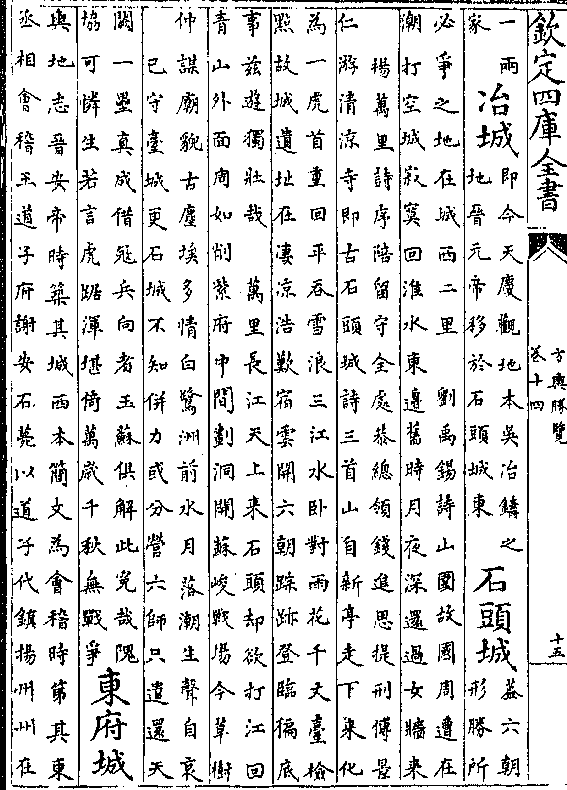 欽定四庫全書
方輿勝覽
卷十四
十五
一兩
家
冶城
即今天慶觀地本吳冶鑄之
地晉元帝移於石頭城東
石頭城
葢六朝
形勝所
必爭之地在城西二里 劉禹錫詩山圍故國周遭在
潮打空城寂寞回淮水東邊舊時月夜深還過女牆來
楊萬里詩序陪留守全處恭總領錢進思提刑傅景
仁游清凉寺即古石頭城詩三首山自新亭走下來化
為一虎首重回平吞雪浪三江水卧對雨花千丈臺檢
點故城遺址在凄凉浩歎宿雲開六朝蹤跡登臨徧底
事兹遊獨壯哉 萬里長江天上来石頭却欲打江回
青山外面周如削紫府中間劃洞開蘇峻戰塲今草樹
仲謀廟貌古塵埃多情白鷺洲前水月落潮生聲自哀
已守臺城更石城不知併力或分營六師只遣還天
闕一壘真成借冦兵向者王蘇俱解此冤哉隗
協可憐生若言虎踞渾堪倚萬歲千秋無戰爭
東府城
輿地志晉安帝時築其城西本簡文為會稽時第其東
丞相會稽王道子府謝安石薨以道子代鎮揚州州在